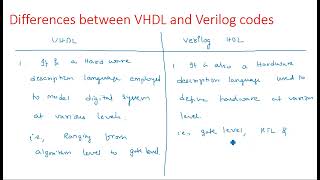 Differences between VHDL and Verilog codes
VHDL
1. It is a Hard ware
description language employed
to model digital system
at various levels.
i.e., Ranging from
algorithm level to gate level
Verilog HDL
1. It is also a Hardware
description language used to
define hardware at various
level.
i.e., gate level, RTL &